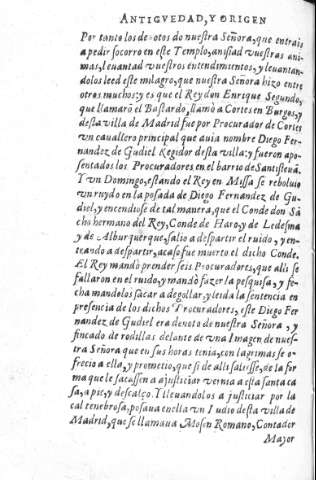 ANTIGVEDAD, Y ORIGEN
Por tanto los deuotos de nuestra Señora, que entrais
a pedir socorro en este Templo, ansiad vuestras ani-
mas, leuantad vuestros entendimientos, y leuantan-
dolos leed este milagro, que nuestra Señora hizo entre
otros muchos: y es que el Rey don Enrique Segundo,
que llamarõ el Bastardo, llamò a Cortes en Burgos, y
desta villa de Madrid fue por Procurador de Cortes
vn cauallero principal que auia nombre Diego Fer-
nandez de Gudiel Regidor desta villa: y fueron apo-
sentados los Procuradores en el barrio de Santisteuã.
Y vn Domingo, estando el Rey en Missa se reboluio
vn ruydo en la posada de Diego Fernandez de Gu-
diel, y encendiose de tal manera, que el Conde don Sã
cho hermano del Rey, Conde de Haro, y de Ledesma
y de Alburquerque, salio a despartir el ruido, y en-
trando a despartir, acaso fue muerto el dicho Conde.
El Rey mandò prender seis Procuradores, que alli se
fallaron en el ruido, y mandò fazer la pesquisa, y fe-
cha mandolos sacar a degollar, y leida la sentencia en
presencia de los dichos Procuradores, este Diego Fer
nandez de Gudiel era deuoto de nuestra Señora, y
fincado de rodillas delante de vna Imagen de nues-
tra Señora que en sus horas tenia, con lagrimas se o-
frecio a ella, y prometio, que si de alli saliesse, de la for
ma que le sacassen a justiciar vernia a esta santa ca
sa, a pie, y descalço. Y lleuandolos a justiciar por la
cal tenebrosa, posaua en ella vn Iudio desta villa de
Madrid, que se llamaua Mosen Romano, Contador
Mayor